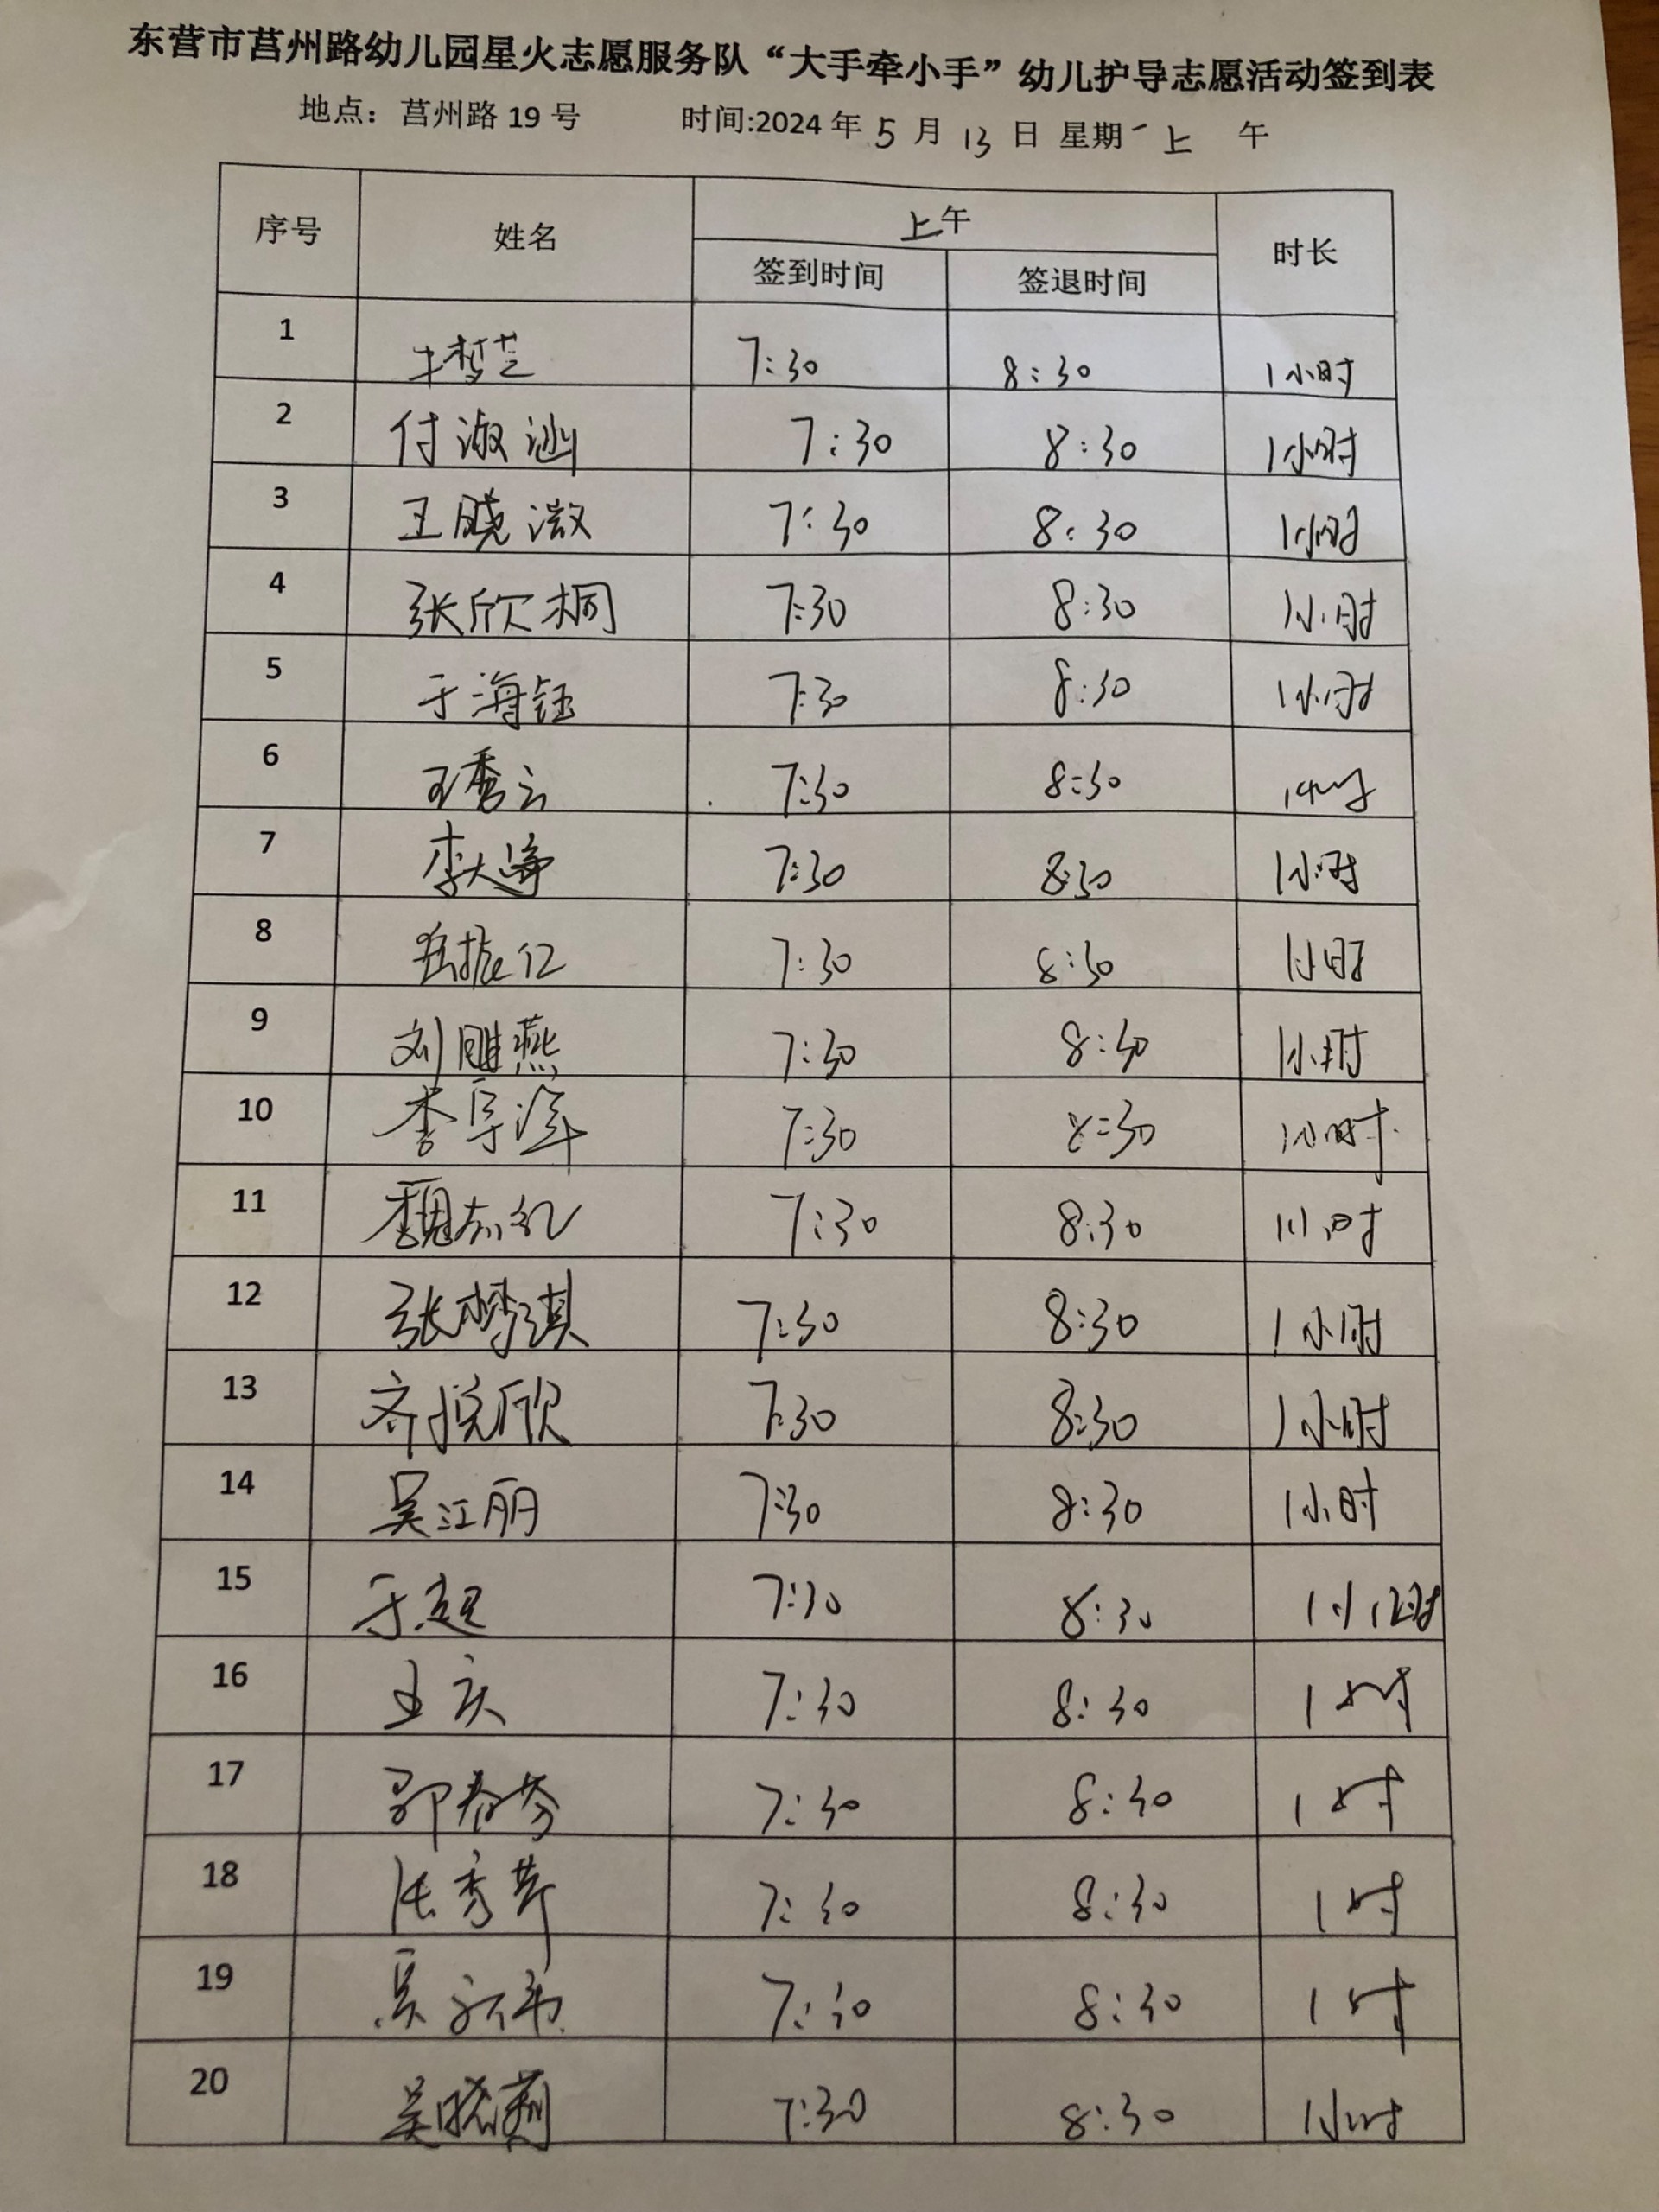 东营市莒州路幼儿园星火志愿服务队“大手牵小手”幼儿护导志愿活动签到表
地点：莒州路 19 号 时间:2024 年 5 月 13 日 星期一 上 午
序号 姓名 上午 时长
签到时间 签退时间
1 7:30 8:30 1小时
2 付淑涵 7:30 8:30 1小时
3 王晓溦 7:30 8:30 1小时
4 张欣桐 7:30 8:30 1小时
5 于海钰 7:30 8:30 1小时
6 王秀云 7:30 8:30 1小时
7 李大 7:30 8:30 1小时
8 岳振红 7:30 8:30 1小时
9 刘雎燕 7:30 8:30 1小时
10 李 7:30 8:30 1小时
11 魏志红 7:30 8:30 1小时
12 张梦琪 7:30 8:30 1小时
13 齐悦欣 7:30 8:30 1小时
14 吴江丽 7:30 8:30 1小时
15 于超 7:30 8:30 1小时
16 王庆 7:30 8:30 1小时
17 邵春芬 7:30 8:30 1时
18 张秀芹 7:30 8:30 1时
19 吴 7:30 8:30 1时
20 吴晓莉 7:30 8:30 1小时